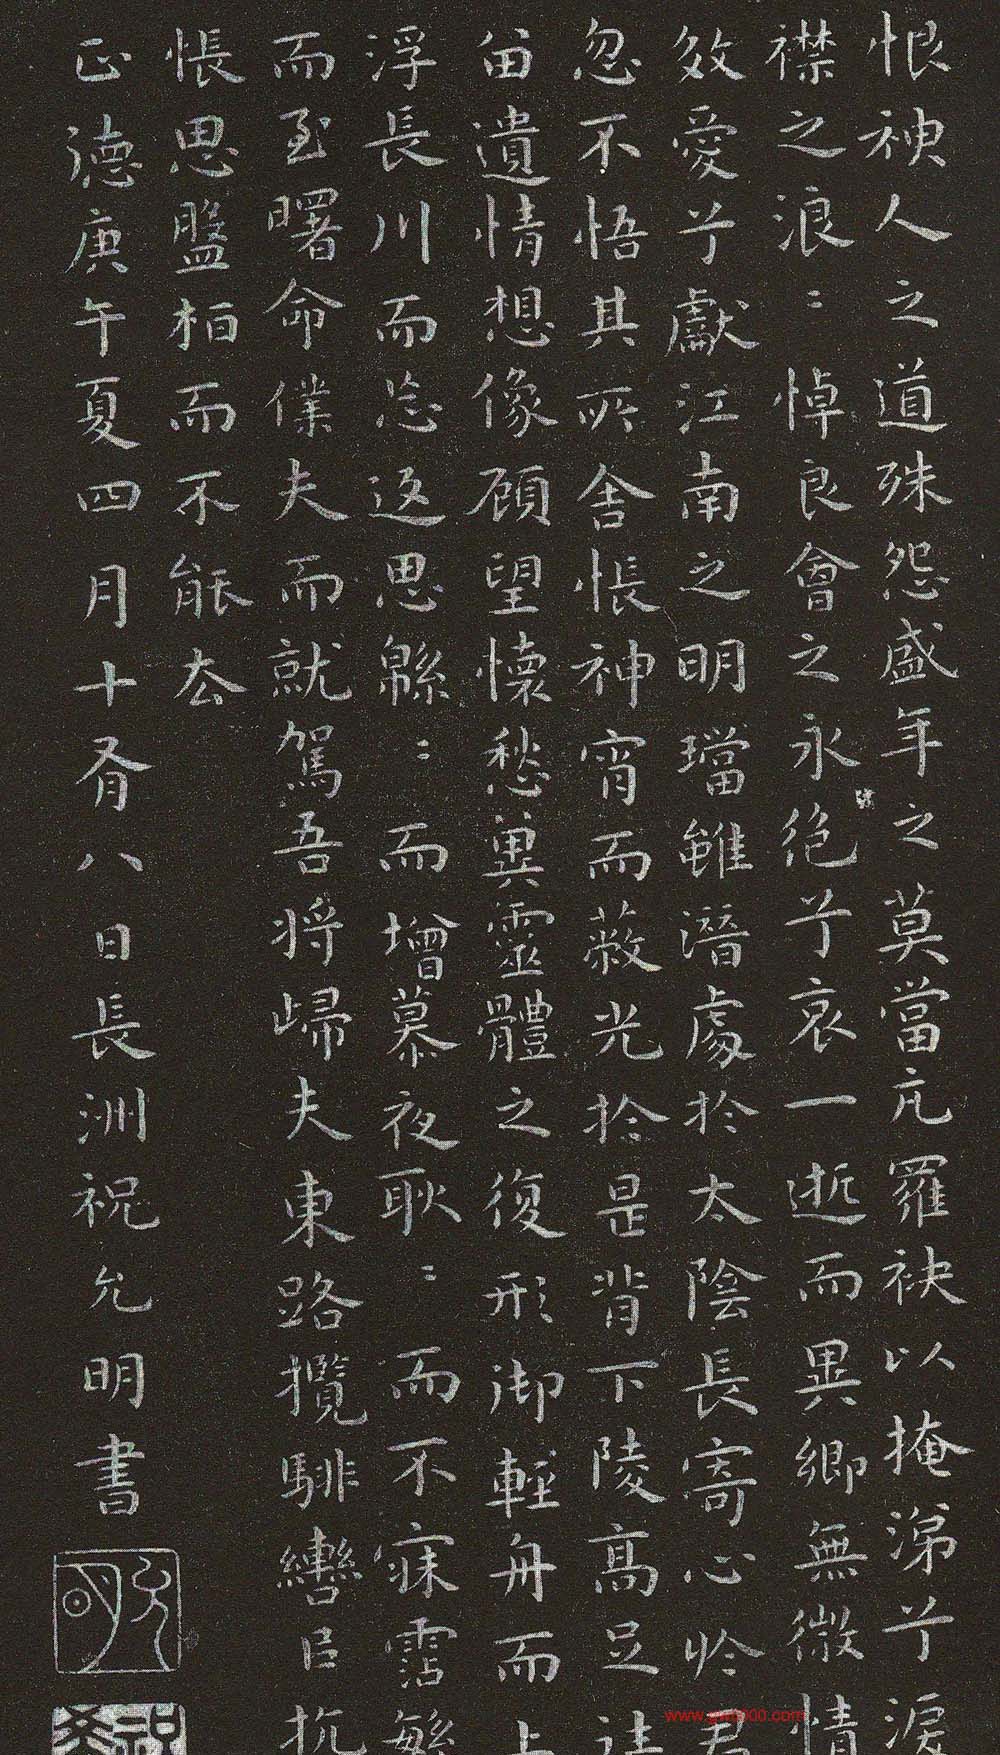 恨神人之道殊怨盛年之莫當亢羅袂以掩涕兮淚
襟之浪〻悼良會之永絕兮哀一逝而異鄉無微情
效愛兮獻江南之明璫雖潛處於太陰長寄心於君
忽不悟其所舍悵神宵而蔽光於是背下陵高足往
留遺情想像顧望懷愁冀靈體之復形御輕舟而上
浮長川而忘返思緜〻而增慕夜耿〻而不寐霑繁
而至曙命僕夫而就駕吾將歸夫東路攬騑轡㠯抗
悵思盤桓而不能去
正德庚午夏四月十有八日長洲祝允明書
允明
www.gw8000.com